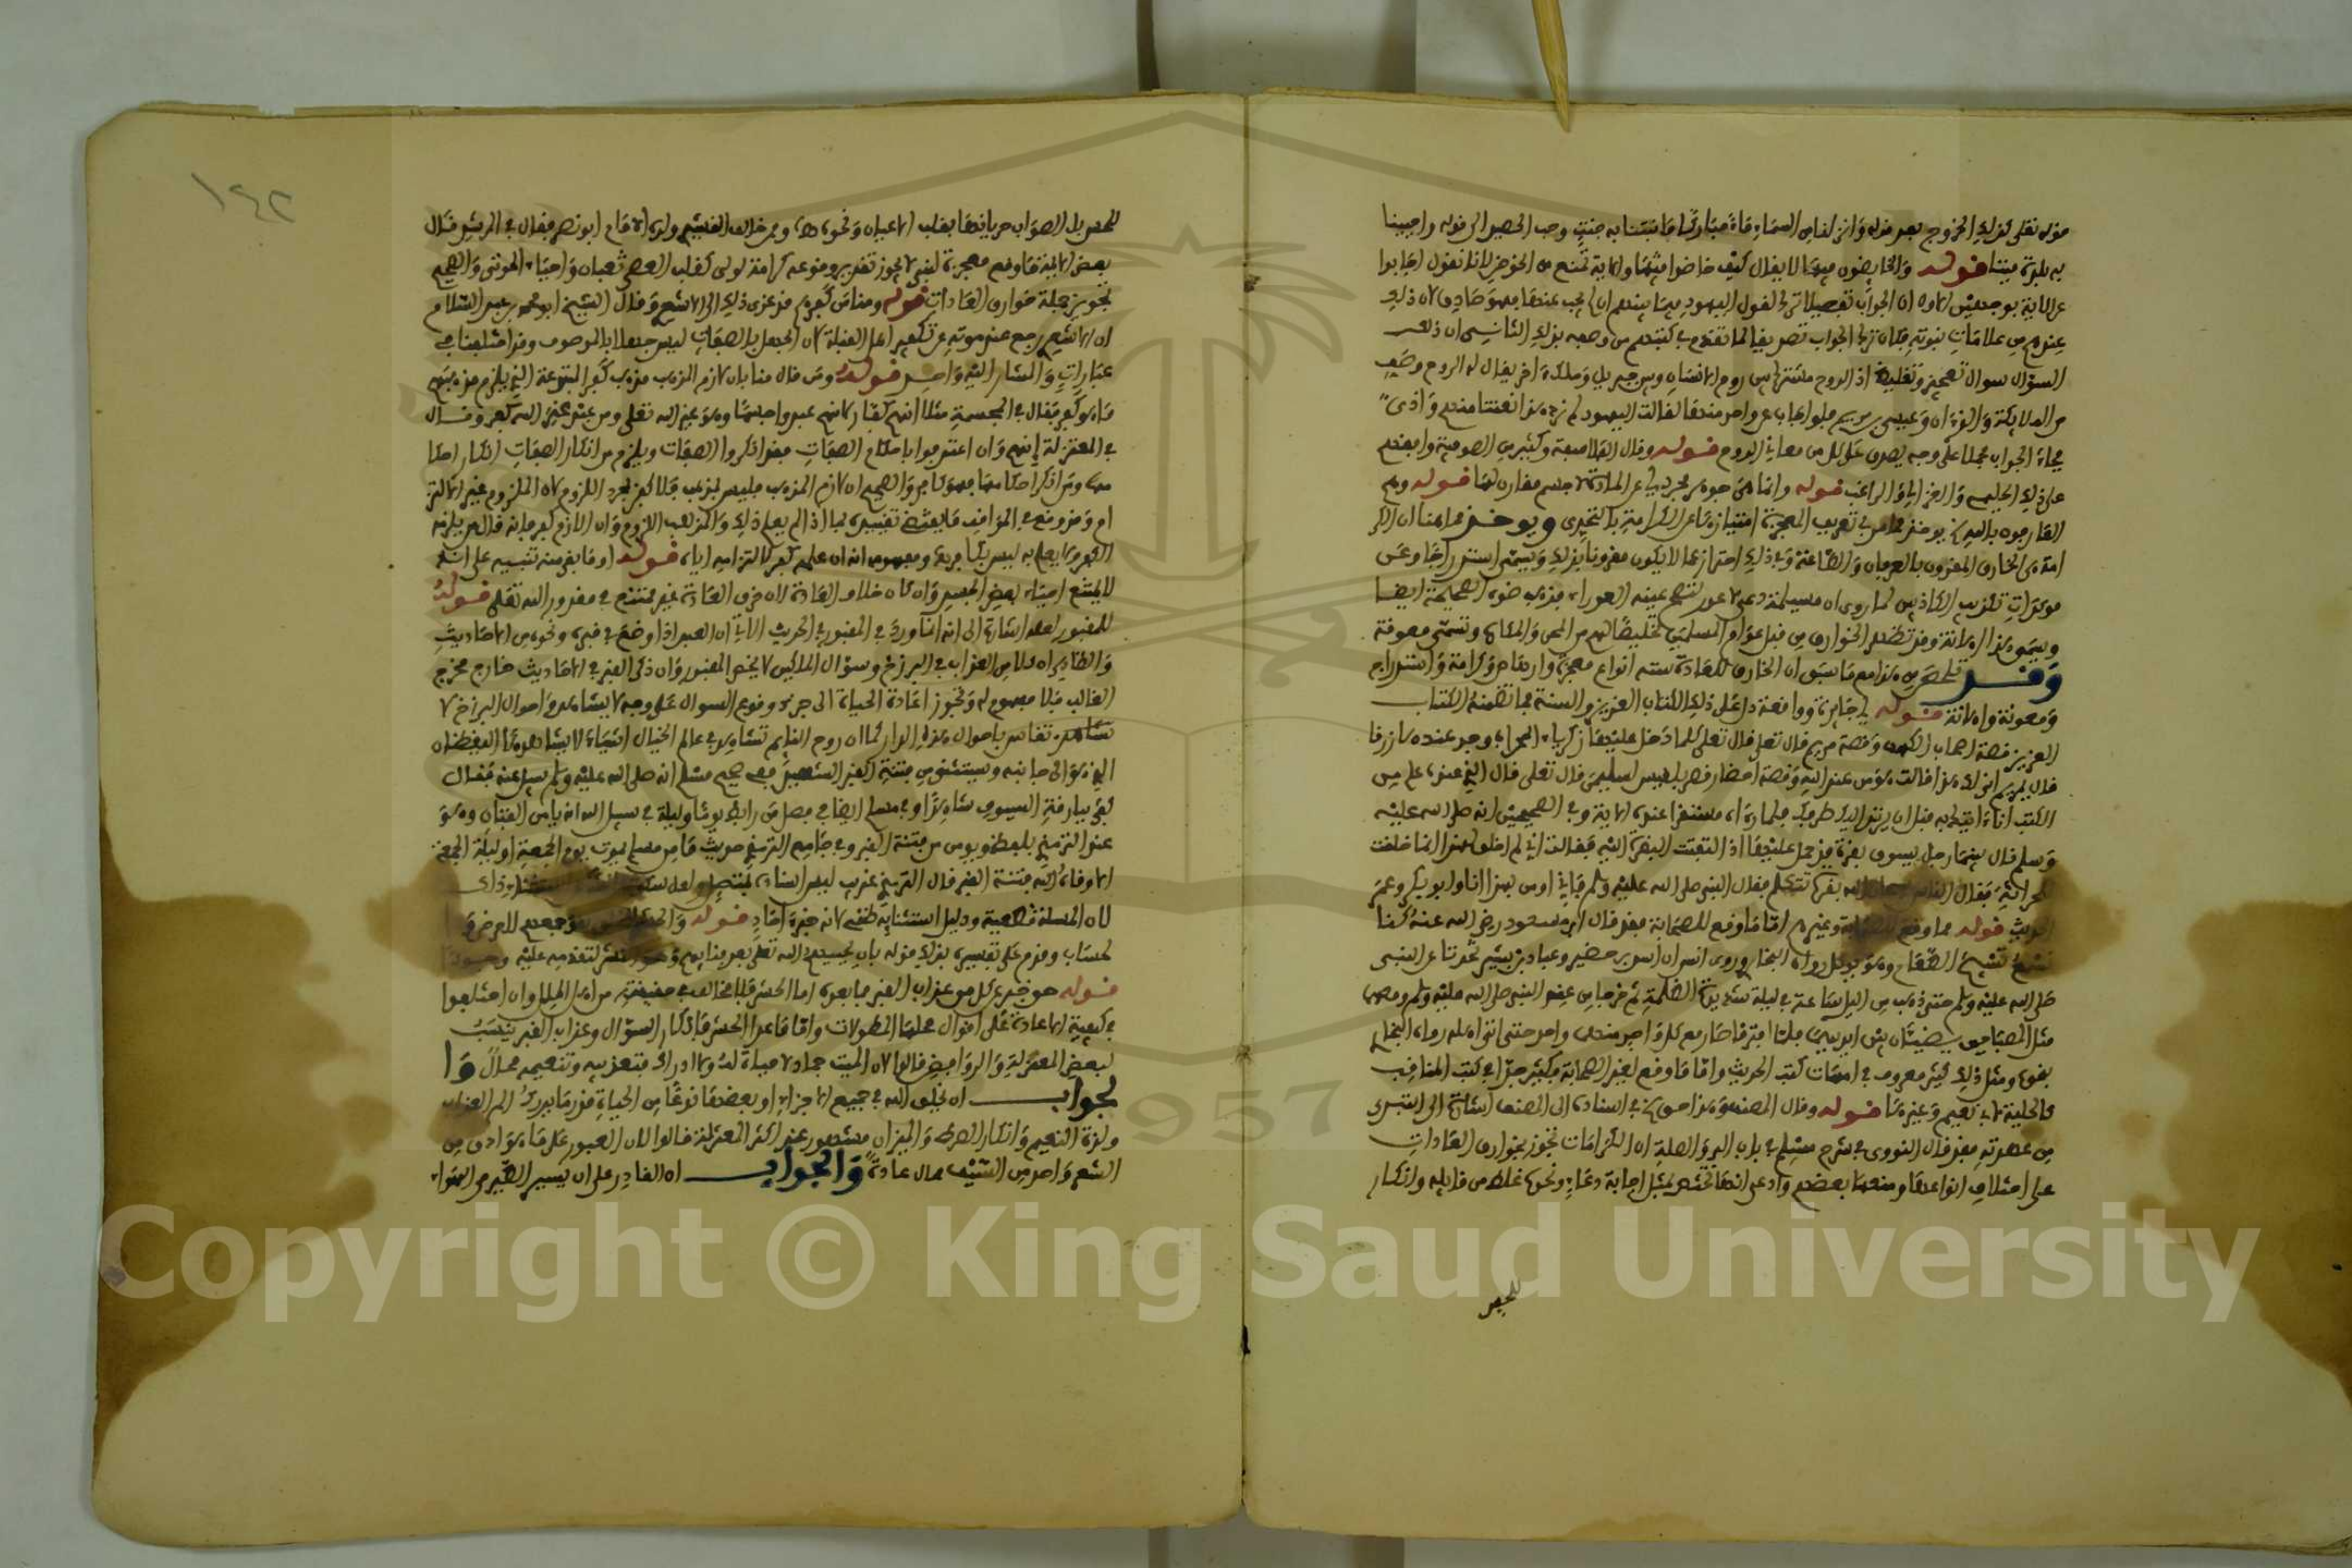 قوله تعلى كذلك الخروج بعد قوله وانزلنا من السماء ماء مباركا فانبتنا به جنت وحب الحصيد الى قوله واحيينا
به بلدة ميتا قوله والخايضون فيها لا يقال كيف خاضوا فيها والاية تمنع من الخوض لانا نقول اجابوا
عن الاية بوجهين الاول ان الجواب تفصيلا ترك لقول اليهود فيما بينهم ان لم يجب عنها فهو صادق لان ذلك
عندهم من علامات نبوته فكان ترك الجواب تصديقا لما تقدم في كتبهم من وصفه بذلك الثاني ان ذلك
السؤال سوال تعجيز وتغليط اذ الروح مشترك بين روح الانسان وجبريل وملك اخر يقال له الروح وصنف
من الملائكة والقرءان وعيسى بن مريم فلو اجاب عن واحد منها لقالت اليهود لم نرد هذا تعنتا منهم واذى
فجاء الجواب مجملا على وجه يصدق على كل من معاني الروح قوله وقال الفلاسفة وكثير من الصوفية وافقهم
على ذلك الحليمي والغزالي والراغب قوله وانما هي جوهر مجرد اي عن المادة لا جسم مقارن لها قوله وهم
العارفون بالله يوخذ مما مر في تعريف المعجزة امتيازها عن الكرامة بالتحدي ويوخذ مما هنا ان الكر
امة هي الخارق المقرون بالعرفان والطاعة وفي ذلك احتراز عما لا يكون مقرونا بذلك ويسمى استدراجا وعن
موكدات تكذيب الكاذبين كما روى ان مسيلمة دعى لاعور لتصح عينه العوراء فذهب ضوء الصحيحة ايضا
ويسمى هذا اهانة وقد تظهر الخوارق من قبل عوام المسلمين تخليصا لهم من المحن والمكاره وتسمى معونة
وقد تلخص من هذا مع ما سبق ان الخارق للعادة ستة انواع معجزة وارهاص وكرامة واستدراج
ومعونة واهانة قوله اي جايزة وواقعة دل على ذلك الكتاب العزيز والسنة فما تضمنه الكتاب
العزيز قصة اصحاب الكهف وقصة مريم قال تعلى كلما دخل عليها زكرياء المحراب وجد عندها رزقا
قال يمريم انى لك هذا قالت هو من عند الله وقصة احضار عرش بلقيس لسليمن قال تعلى قال الذي عنده علم من
الكتب انا ءاتيك به قبل ان يرتد اليك طرفك فلما رءاه مستقرا عنده الاية وفي الصحيحين انه صلى الله عليه
وسلم قال بينما رجل يسوق بقرة قد حمل عليها اذ التفتت البقرة اليه فقالت اني لم اخلق لهذا انما خلقت
للحراثة فقال الناس سبحان الله بقرة تتكلم فقال النبي صلى الله عليه وسلم فاني اومن بهذا انا وابو بكر وعمر
الحديث قوله مما وقع للصحابة وغيرهم اما ما وقع للصحابة فقد قال ابن مسعود رضي الله عنه كنا
نسمع تسبيح الطعام وهو يوكل رواه البخاري وروى انس ان اسيد بن حضير وعباد بن بشير تحدثا عن النبي
صلى الله عليه وسلم حتى ذهب من الليل ساعة في ليلة شديدة الظلمة ثم خرجا من عند النبي صلى الله عليه وسلم ومعهما
مثل المصباحين يضيئان بين ايديهما فلما افترقا صار مع كل واحد منهما واحد حتى اتى اهله رواه البخاري
بنحوه ومثل ذلك كثير معروف في امهات كتب الحديث واما ما وقع لغير الصحابة فكثير جدا في كتب المناقب
كالحلية لابي نعيم وغيرها قوله وقال المصنف وهذا حق في اسناده الى المصنف اشارة الى التبري
من عهدته فقد قال النووي في شرح مسلم في باب البر والصلة ان الكرامات تجوز بخوارق العادات
على اختلاف انواعها ومنعه بعضهم وادعى انها تختص بمثل اجابة دعاء ونحوه غلط من قايله وانكار
للحس
١٤٢
للحس بل الصواب جريانها بقلب الاعيان ونحوه وممن خالف القشيري ولده الامام ابو نصر فقال في المرشد قال
بعض الايمة ما وقع معجزة لنبي لا يجوز تقدير وقوعه كرامة لولي كقلب العصى ثعبان واحياء الموتى والصحيح
تجويز جملة خوارق العادات قوله ومنا من كفرهم قد عزي ذلك الى الاشعري وقال الشيخ ابو محمد بن عبد السلام
ان الاشعري رجع عند موته عن تكفير اهل القبلة لان الجهل بالصفات ليس جهلا بالموصوف وقد اختلفنا في
عبارات والمشار اليه واحد قوله ومن قال منا بان لازم المذهب مذهب كفر المبتدعة الذي يلزم مذهبهم
ما هو كفر فقال في المجسمة مثلا انهم كفار لانهم عبدوا جسما وهو غير الله تعلى ومن عبد غير الله كفر وقال
في المعتزلة انهم وان اعترفوا باحكام الصفات فقد انكروا الصفات ويلزم من انكار الصفات انكار احكا
مها ومن انكر احكامها فهو كافر والصحيح ان لازم المذهب فليس بمذهب فلا كفر بمجرد اللزوم لان اللزوم غير الالتز
ام وقد وقع في المواقف ما يقتضي تقييده بما اذا لم يعلم ذلك والمذهب اللازم وان اللازم كفر فانه قال من يلزمه
الكفر ولا يعلم به ليس بكافر ومفهومه انه ان علمه كفر لالتزامه اياه قوله او ما بقي منه تنبيه على انه
لا يمتنع احياء بعض الجسد وان كان خلاف العادة لان خرق العادة غير ممتنع في مقدور الله تعلى قوله
للمقبور لعله اشارة الى انه انما ورد في المقبور في الحديث الاتي ان العبد اذا وضع في قبره ونحوه من الاحاديث
والظاهر ان كلا من العذاب في البرزخ وسؤال الملكين لا يخص المقبور وان ذكر القبر في الاحاديث خارج مخرج
الغالب فلا مفهوم له وتجوز اعادة الحياة الى جزء ووقوع السوال على وجه لا يشاهد واحوال البرزخ لا
تقاس باحوال هذه الدار كما ان روح النايم تشاهد في عالم الخيال اشياء لا يشاهدها اليقظان
الذي هو الى جانبه ويستثنى من فتنة القبر الشهيد ففي صحيح مسلم انه صلى الله عليه وسلم سئل عنه فقال
كفى ببارقة السيوف شاهدا وفي مسلم ايضا في فصل من رابط يوما وليلة في سبيل الله انه يامن الفتان وهو
عند الترمذي بلفظ ويومن من فتنة القبر وفي جامع الترمذي حديث ما من مسلم يموت يوم الجمعة او ليلة الجمعة
الا وقاه الله فتنة القبر قال الترمذي غريب ليس اسناده بمتصل ولعل
لان المسئلة قطعية ودليل استثنايه ظني لانه خبر احاد قوله والحشر جمعهم للعرض وا
لحساب وقدم على تفسيره بذلك قوله بان يحييهم الله تعلى بعد فنايهم وهو النشر لتقدمه عليه
قوله حق خبر عن كل من عذاب القبر فما بعده اما الحشر فلا مخالف في حقيقته من اهل الملل وان اختلفوا
في كيفية الاعادة على اقوال محلها المطولات واما ما عدا الحشر فانكار السؤال وعذاب القبر ينسب
لبعض المعتزلة والروافض قالوا لان الميت جماد لا حياة له ولا ادراك فتعذيبه وتنعيمه محال وا
لجواب ان يخلق الله في جميع الاجزاء او بعضها نوعا من الحياة قدر ما يدرك الم العذاب
ولذة النعيم وانكار الصراط والميزان مشهور عند اكثر المعتزلة قالوا لان العبور على ما هو ادق من
الشعر واحد من السيف محال عادة والجواب ان القادر على ان يسير الطير في الهواء